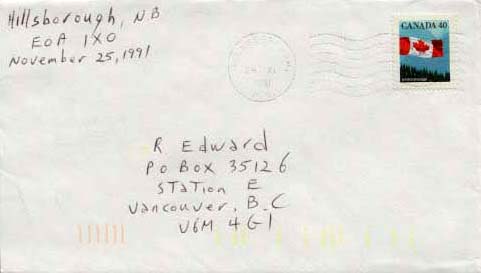 Hillsborough, NB
E0A 1X0
November 25, 1991
CANADA 40
R Edward
PO Box 35126
Station E
Vancouver, B.C
V6M 4G1